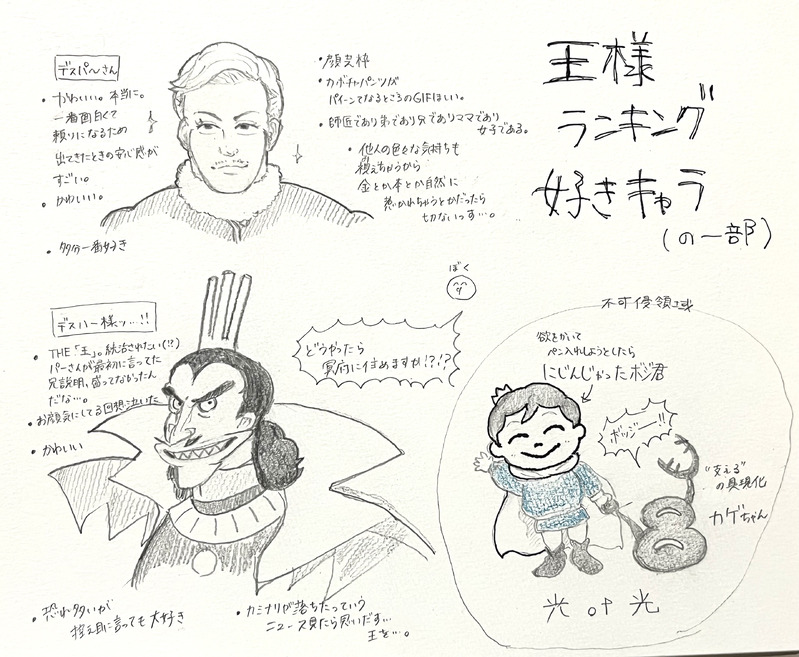 王様
ランキング
好きキャラ
(の一部)
デスパーさん
・かわいい。本当に。
一番面白くて
頼りになるため
出てきたときの安心感が
すごい。
・かわいい。
・多分一番好き
・顔芸枠
・カボチャパンツが
パイーンてなるところのGIFほしい。
・師匠であり弟であり父でありママであり
女子である。
・他人の色々な気持ちも
視えちゃうから
金とか本とか自然に
惹かれちゃうとかだったら
切ないっす…。
デスハー様ッ…!!
・THE「王」。統治されたい(!?)
パーさんが最初に言ってた
兄説明、盛ってなかったん
だな…。
・お顔気にしてる回想泣いた
・かわいい
・恐れ多いが
控え目に言っても大好き
・カミナリが落ちたっていう
ニュース見たら思いだす…
王を…。
ぼく
どうやったら
冥府に住めますか!?!?
不可侵領域
欲をかいて
ペン入れしようとしたら
にじんじゃったボジ君
ボッジー!!
"支える"
の具現化
カゲちゃん
光 of 光